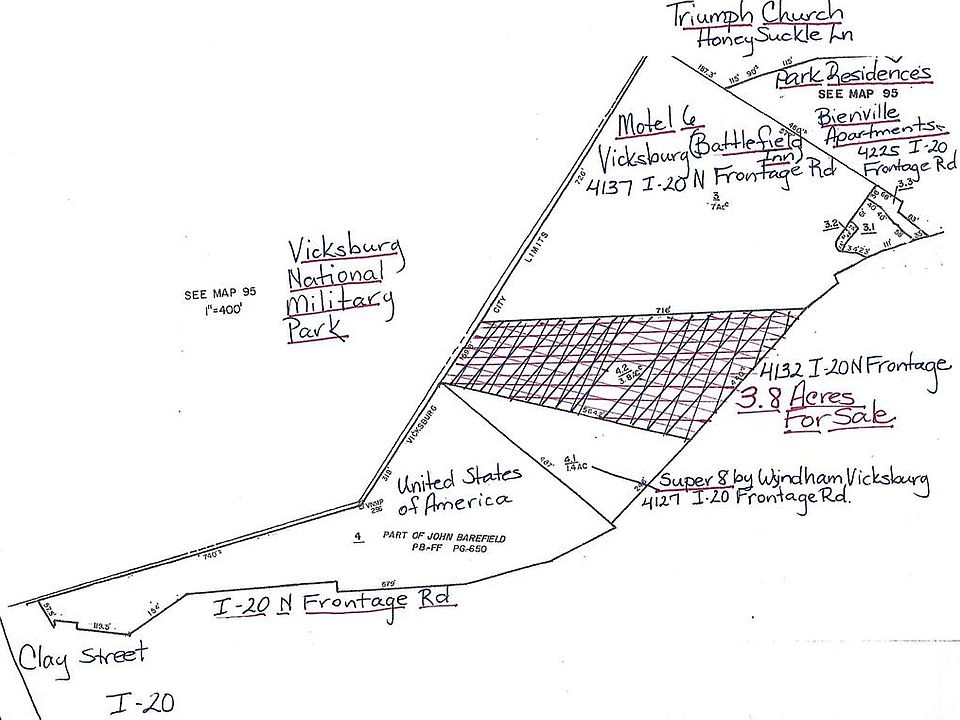 Triumph Church
HoneySuckle Ln
187.3'
115'
90'
115'
Park Residences
SEE MAP 95
Bienville
Apartments
4225 I-20
Frontage Rd
Motel 6
Vicksburg (Battlefield
Inn)
4137 I-20 N Frontage Rd
3
7Ac
726'
3.3
3.2
3.1
111'
CITY LIMITS
Vicksburg
National
Military
Park
SEE MAP 95
1"=400'
716'
4.2
3.8Ac
4132 I-20 N Frontage
3.8 Acres
For Sale
VICKSBURG
318'
United States
of America
VNMP
4.1
1.4 AC
487'
Super 8 by Wyndham Vicksburg
4127 I-20 Frontage Rd.
4
PART OF JOHN BAREFIELD
PB-FF PG-650
740'
679'
I-20 N Frontage Rd
57.5'
119.5'
154'
Clay Street
I-20